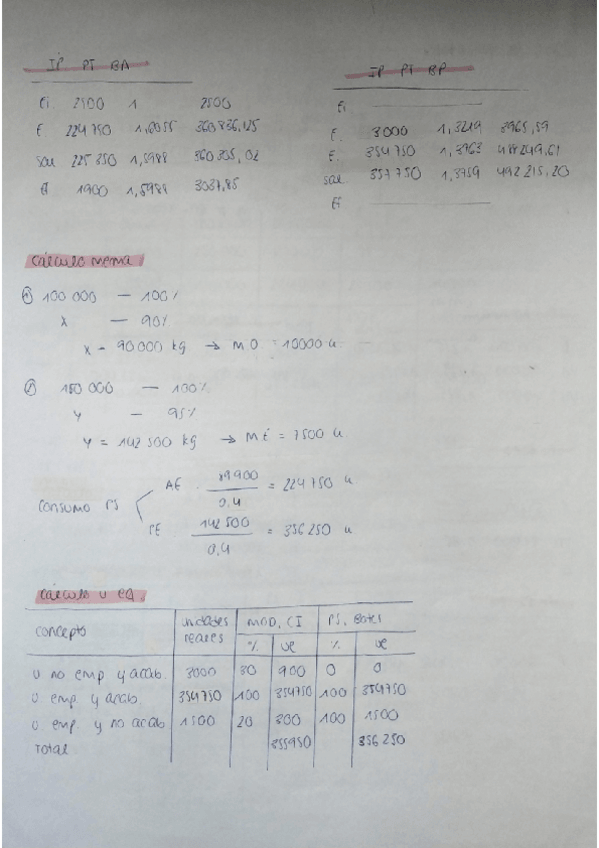 IP PT BA
Ei 2500 1 2500
E 224 750 1,6055 360 836,125
sal 225 350 1,5988 360 305,02
Ef 1900 1,5988 3037,85
IP PT BP
Ei
E. 3000 1,3219 3965,59
E. 354750 1,3763 488249,61
sal 357 750 1,3759 492 215,20
Ef
cálculo merma
① 100 000 — 100%
x — 90%
x = 90 000 kg → MO = 10000 u.
② 150 000 — 100%
y — 95%
y = 142 500 kg → ME = 7500 u
Consumo PS
AE. 89 900 / 0,4 = 224 750 u
PE. 142 500 / 0,4 = 356 250 u
cálculo u eq.
concepto unidades reales MOD, CI PS, Botel
% ue % ue
u no emp y acab. 3000 30 900 0 0
u emp y acab 354750 100 354750 100 354750
u emp. y no acab 1500 20 300 100 1500
Total 355950 356 250